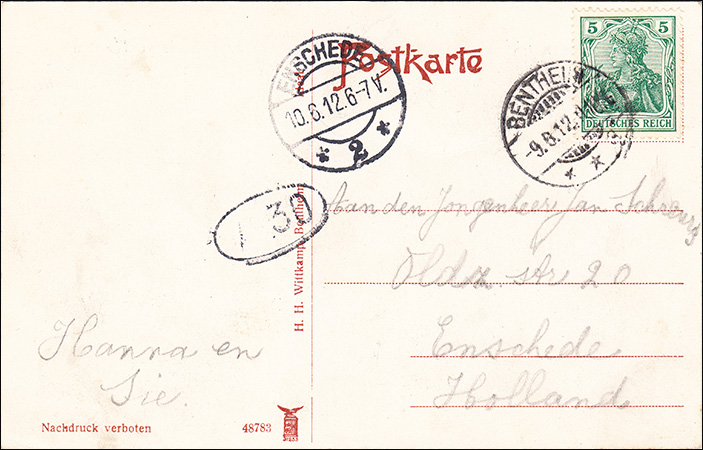 Postkarte
5 5
DEUTSCHES REICH
ENSCHEDE
10.6.12.6-7V.
* 2 *
BENTHEIM
-9.6.12.
* *
30
Aan den Jongenheer Jan
Str 20
Enschede
Holland
Hanna en
Sie.
H. H. Wittkamp, Bentheim
Nachdruck verboten
48783